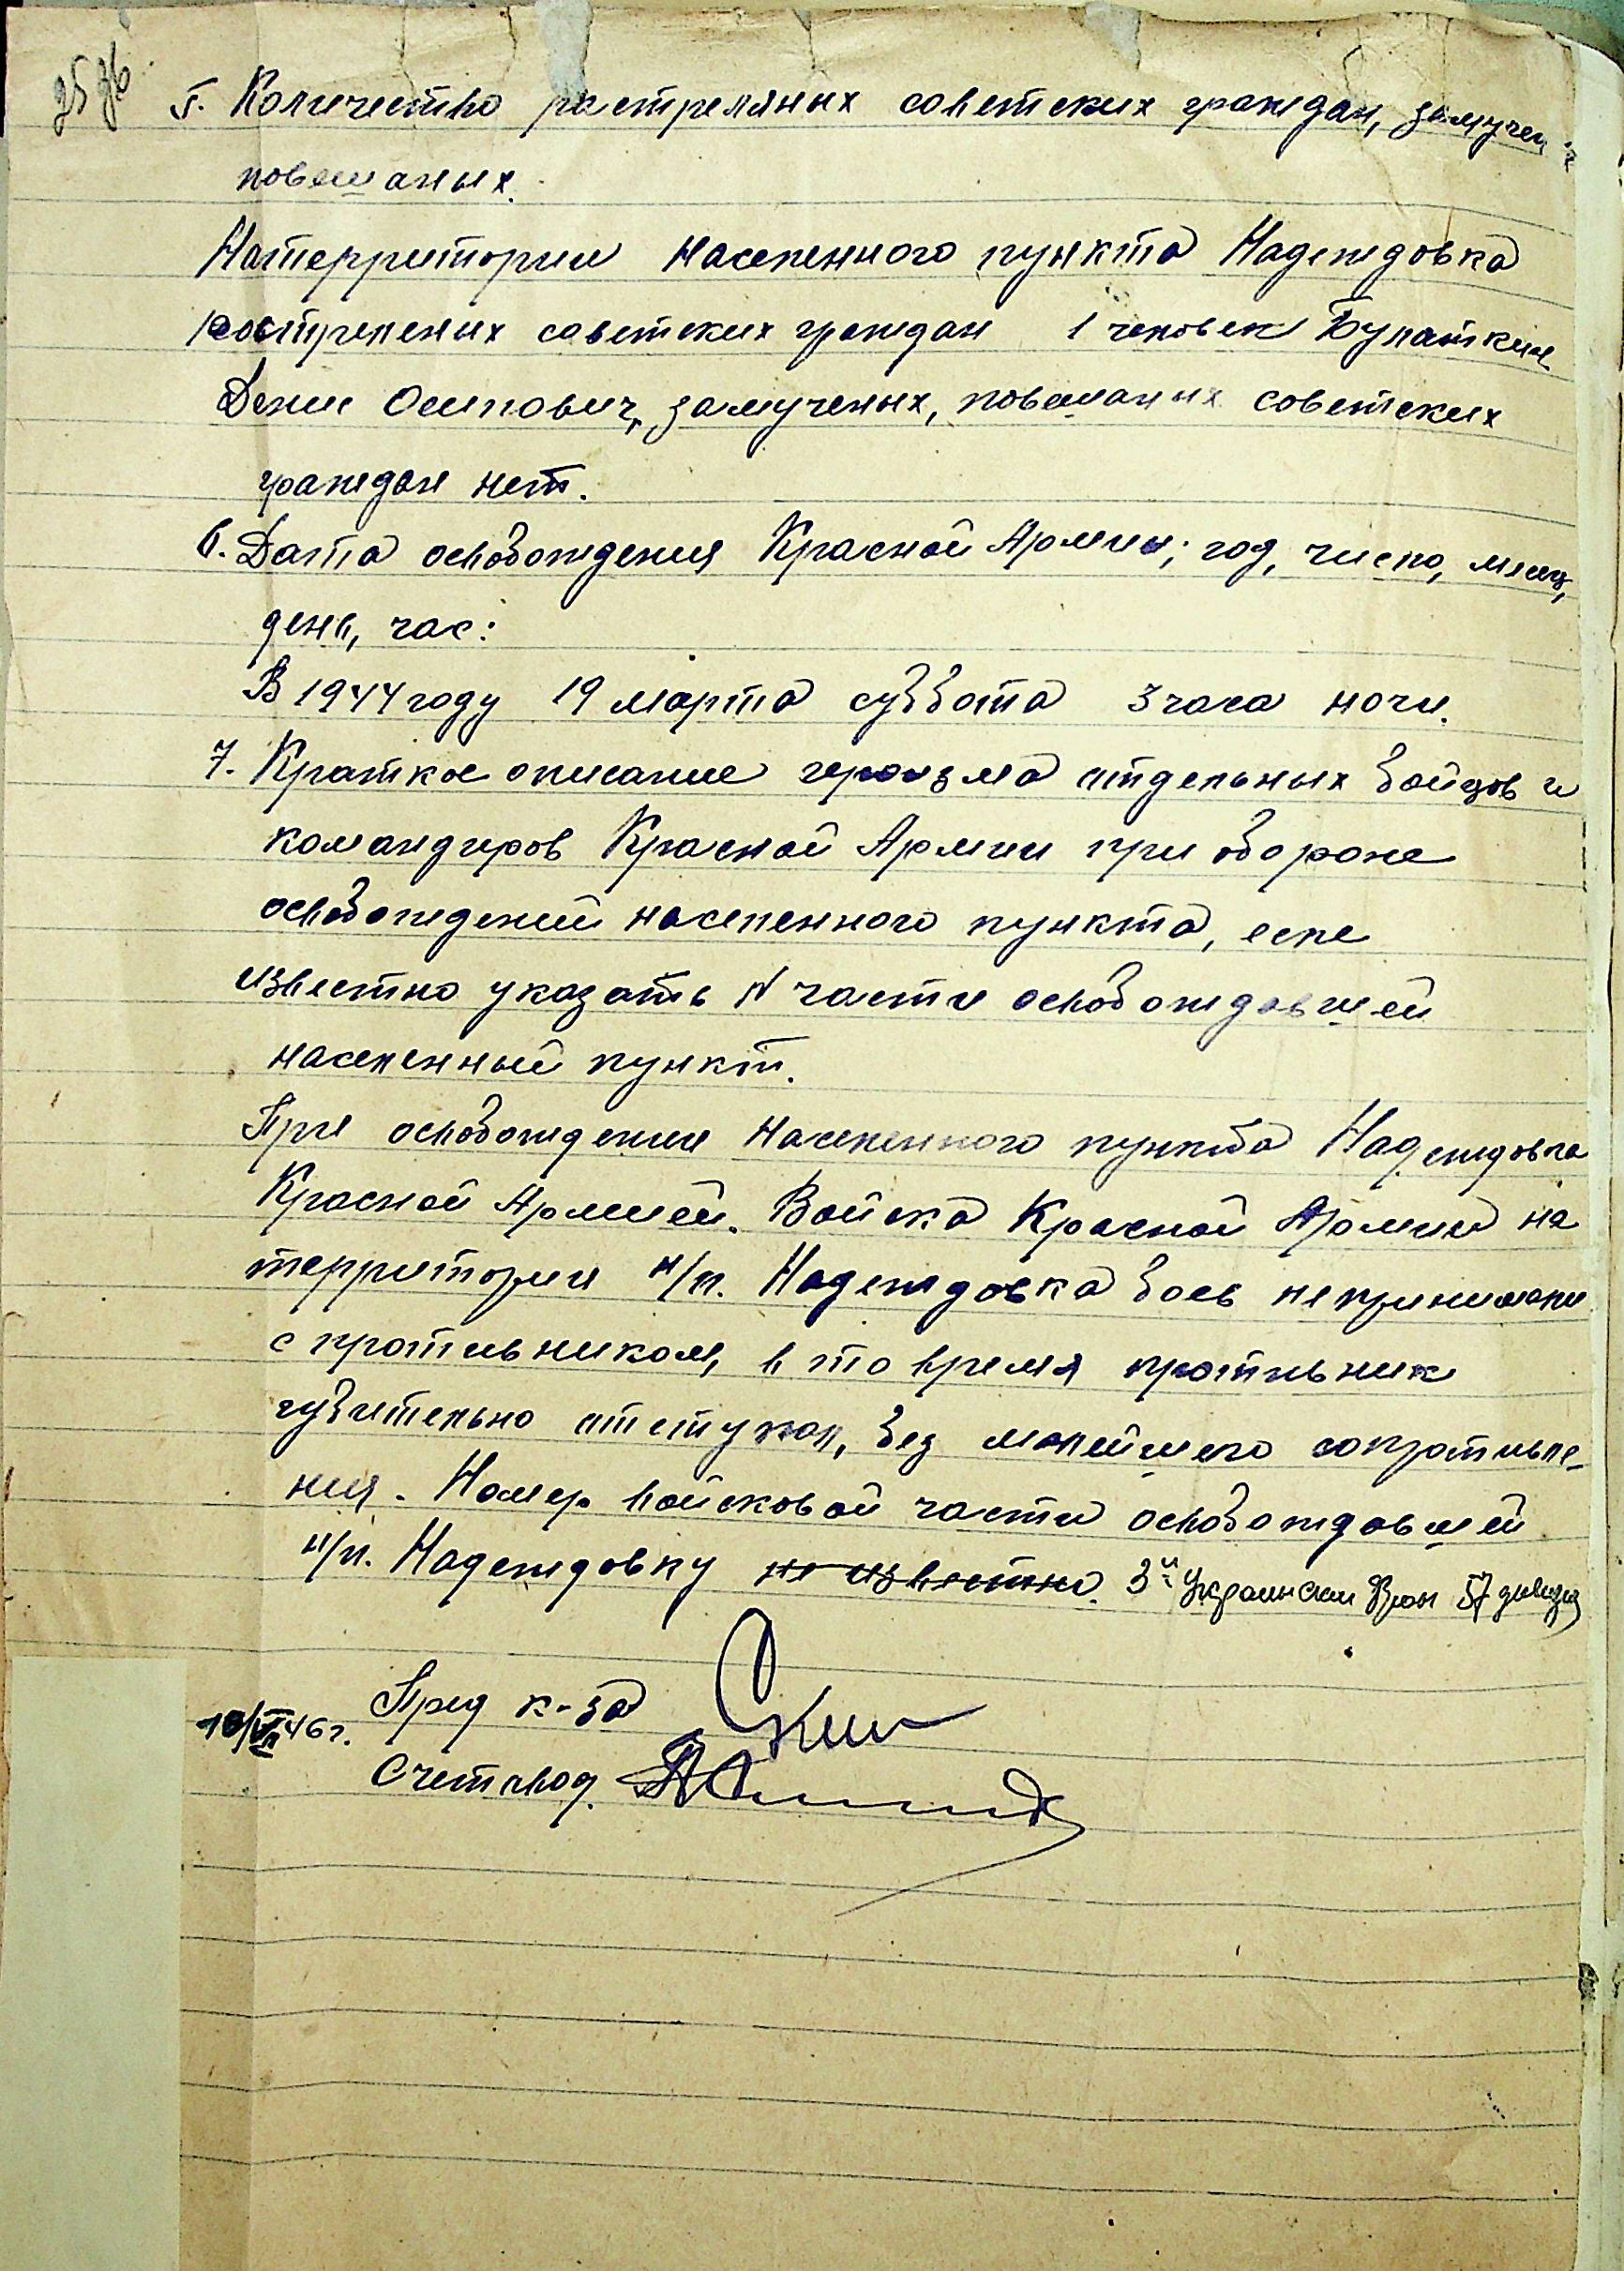 25 26
5. Количество растреляных советских граждан, замучен
повешаных.
Натерритории населенного пункта Надеждовка
расстреленых советских граждан 1 человек Булаткин
Денис Осипович, замученых, повешаных советских
граждан нет.
6. Дата освобождения Красной Армии; год, число, месяц,
день, час:
В 1944 году 19 марта суббота 3 часа ночи.
7. Краткое описание героизма отдельных бойцов и
командиров Красной Армии при обороне
освобождений населенного пункта, если
известно указать N части освобождавшей
населенный пункт.
При освобождении населенного пункта Надеждовка
Красной Армией. Войска Красной Армии на
территории н/п. Надеждовка боев непринимали
с противником, в то время противник
губительно отступал, без малейшего сопротивле-
ния. Номер войсковой части освобождавшей
н/п. Надеждовку не известно. 3й Украински Фрон 57 дивизия
Пред к-за
10/VII 46 г.
Счетовод.